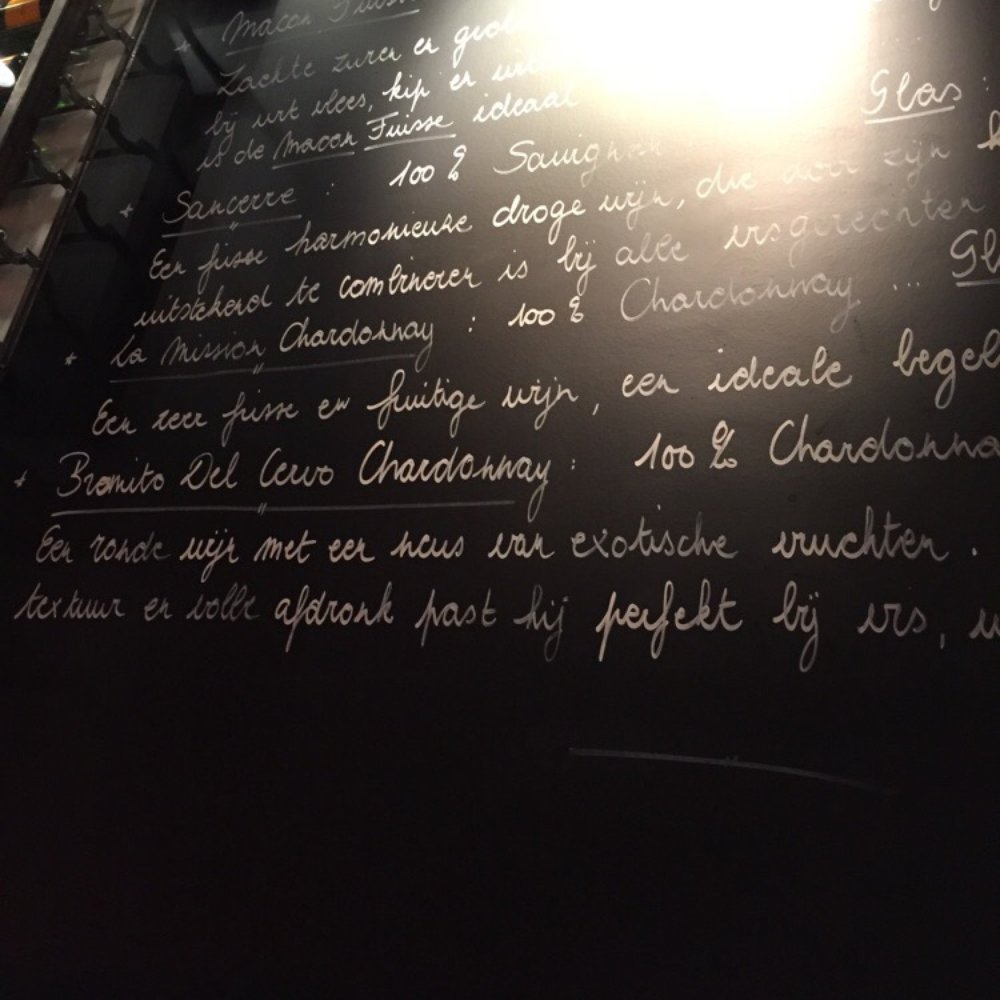 * Macon Fuisse
Zachte zuren en
bij wit vlees, kip en
is de Macon Fuisse ideaal
Glas :
* Sancerre : 100 %
Een frisse harmonieuse droge wijn, die door zijn
uitstekend te combineren is bij alle visgerechten
* La Mission Chardonnay : 100 % Chardonnay ...
Een zeer frisse en fruitige wijn, een ideale
* Bramito Del Cervo Chardonnay : 100 %
Een ronde wijn met een neus van exotische vruchten .
textuur en volle afdronk past hij perfekt bij vis,